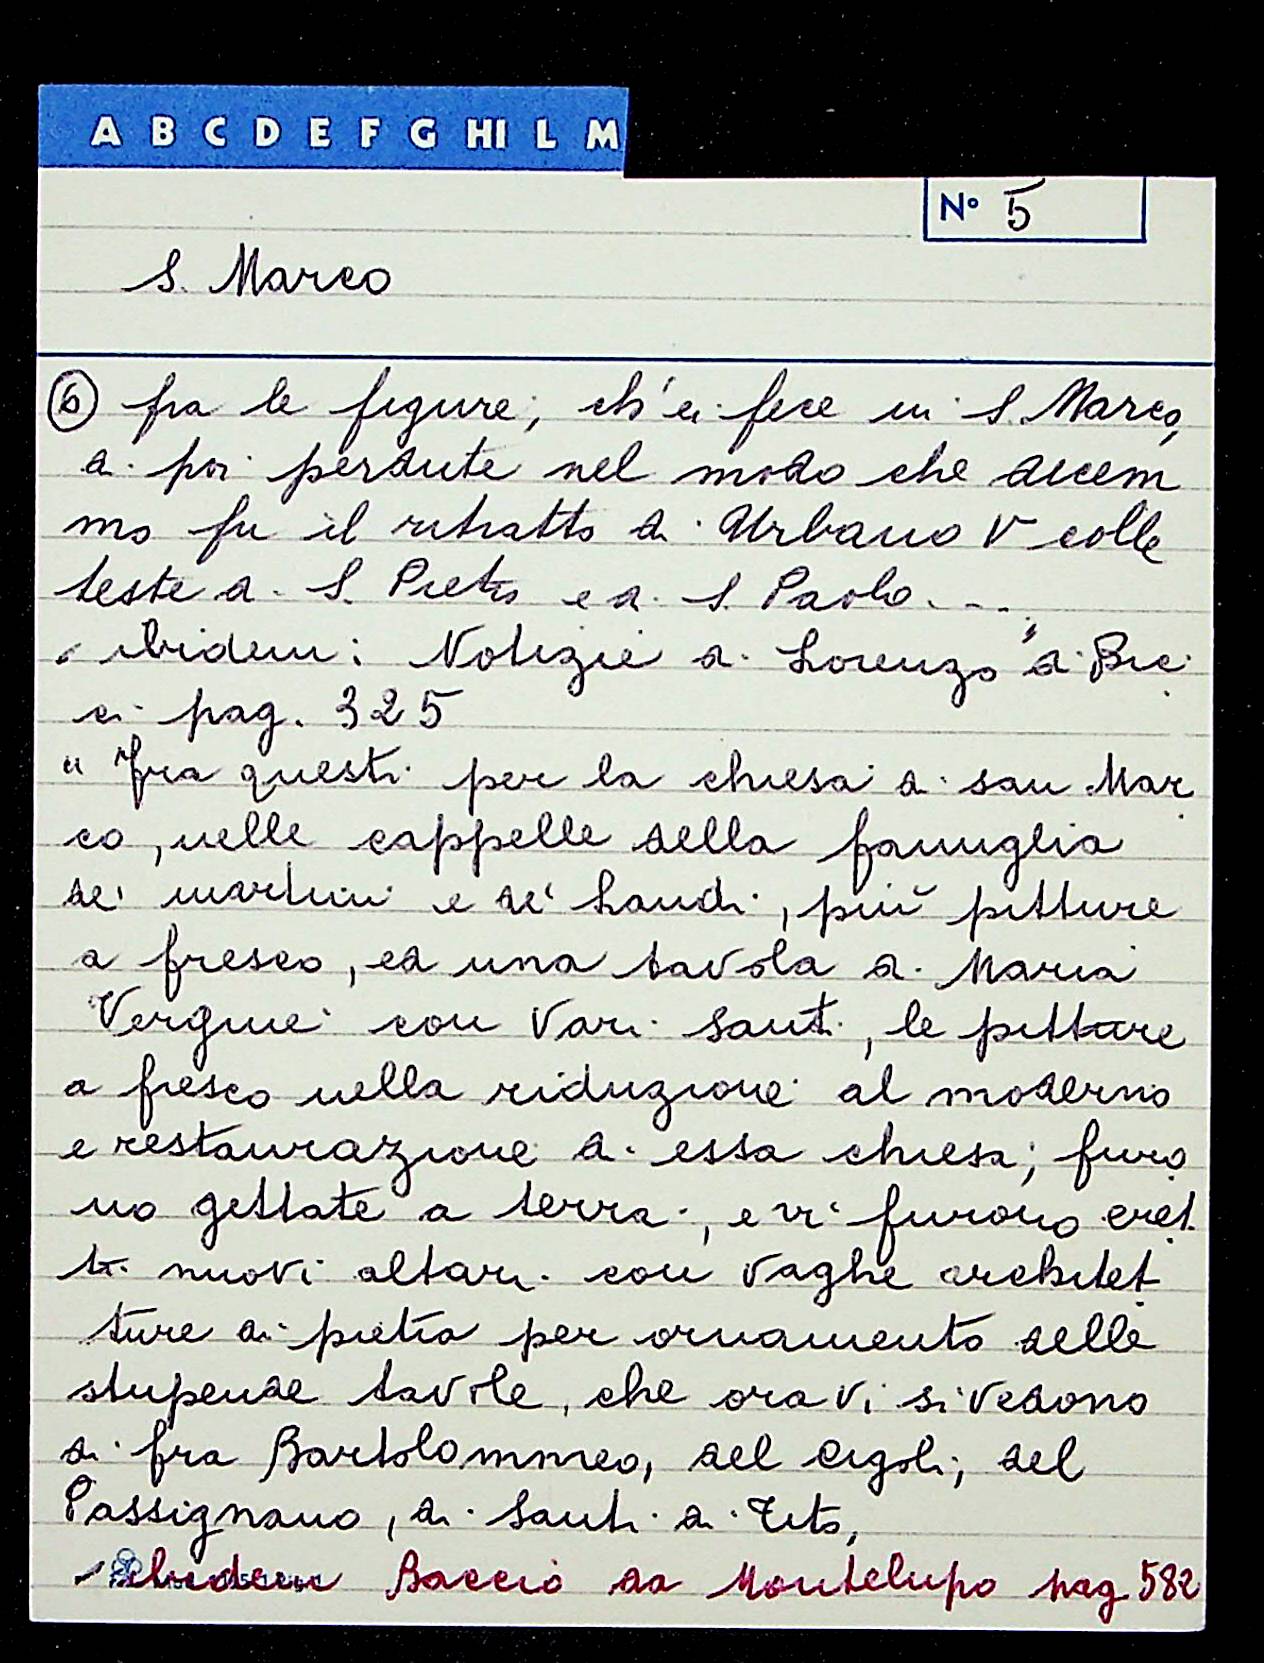 A B C D E F G HI L M
Nº 5
S. Marco
⑥ fra le figure, ch'ei fece in S. Marco,
di poi perdute nel modo che dicem
mo fu il ritratto di Urbano V colle
teste di S. Pietro e di S. Paolo....
ibidem: Notizie di Lorenzo di Bic
ci pag. 325
" Fra questi per la chiesa di san Mar
co, nelle cappelle della famiglia
de' martini e de' Landi, più pitture
a fresco, ed una tavola di Maria
Vergine con vari santi, le pitture
a fresco nella riduzione al moderno
e restaurazione di essa chiesa, furo
no gettate a terra, e vi furono eret
ti nuovi altari con vaghe architet
ture di pietra per ornamento delle
stupende tavole, che ora vi si vedono
di fra Bartolommeo, del Cigoli, del
Passignano, di Santi di Tito,
ibidem Baccio da Montelupo pag 582